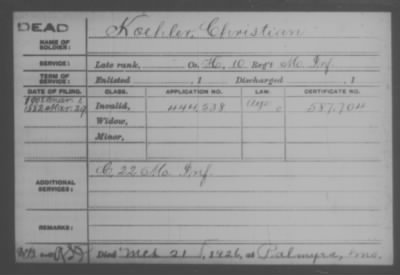 DEAD
NAME OF SOLDIER: Koehler, Christian
SERVICE: Late rank, Co. H, 10 Reg't Mo. Inf.
TERM OF SERVICE: Enlisted , 1 Discharged , 1
DATE OF FILING. CLASS. APPLICATION NO. LAW. CERTIFICATE NO.
1882 Mar. 29 Invalid, 444,538 587.704
Widow,
Minor,
ADDITIONAL SERVICES: C, 22 Mo. Inf.
REMARKS:
Died Mch 21, 1926, at Palmyra, Mo.